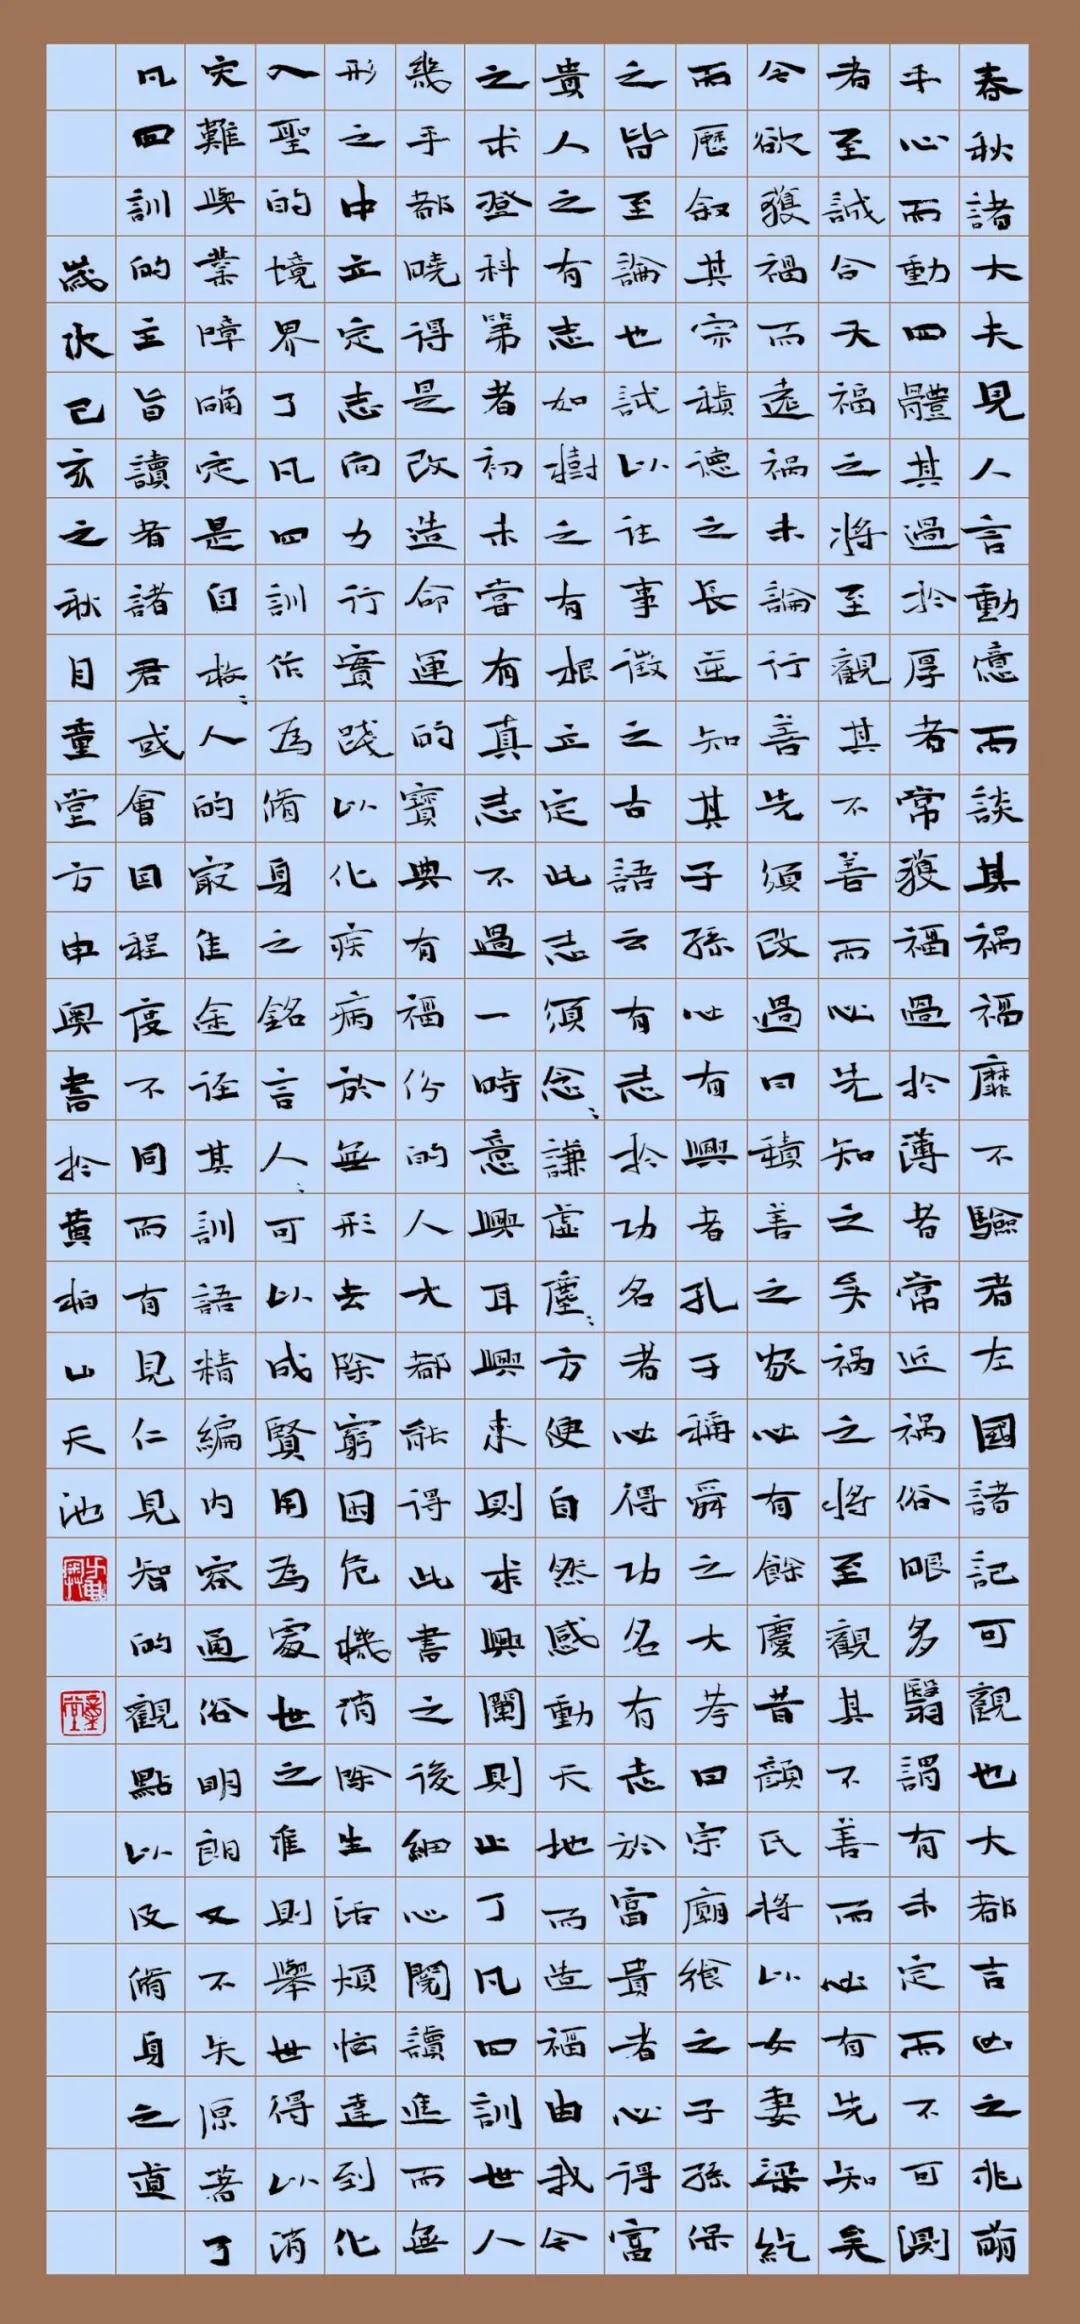 春秋諸大夫見人言動憶而談其禍福靡不驗者左國諸記可觀也大都吉凶之兆萌
乎心而動四體其過於厚者常獲福過於薄者常近禍俗眼多翳謂有未定而不可測
者至誠合天福之將至觀其不善而必先知之矣禍之將至觀其不善而必有先知矣
今欲獲禍而遠禍未論行善先須改過曰積善之家必有餘慶昔顏氏將以女妻梁紇
而歷叙其宗積德之長逆知其子孫必有興者孔子稱舜之大孝曰宗廟飨之子孫保
之皆至論也試以往事徵之古語云有志於功名者必得功名有志於富貴者必得富
貴人之有志如樹之有根立定此志須念〻謙虛塵〻方便自然感動天地而造福由我今
之求登科第者初未嘗有真志不過一時意興耳興來則求興闌則止了凡四訓世人
幾乎都曉得是改造命運的寶典有福份的人大都能得此書之後細心閱讀進而無
形之中立定志向力行實踐以化疾病於無形去除窮困危機消除生活煩惱達到化
入聖的境界了凡四訓作為脩身之銘言人〻可以成賢用為處世之准則舉世得以消
災難與業障确定是自救〻人的最佳途徑其訓語精編內容通俗明朗又不失原著了
凡四訓的主旨讀者諸君或會因程度不同而有見仁見智的觀點以及脩身之道
歲次己亥之秋月童堂方申奧書於黃柏山天池
方申奧
童堂